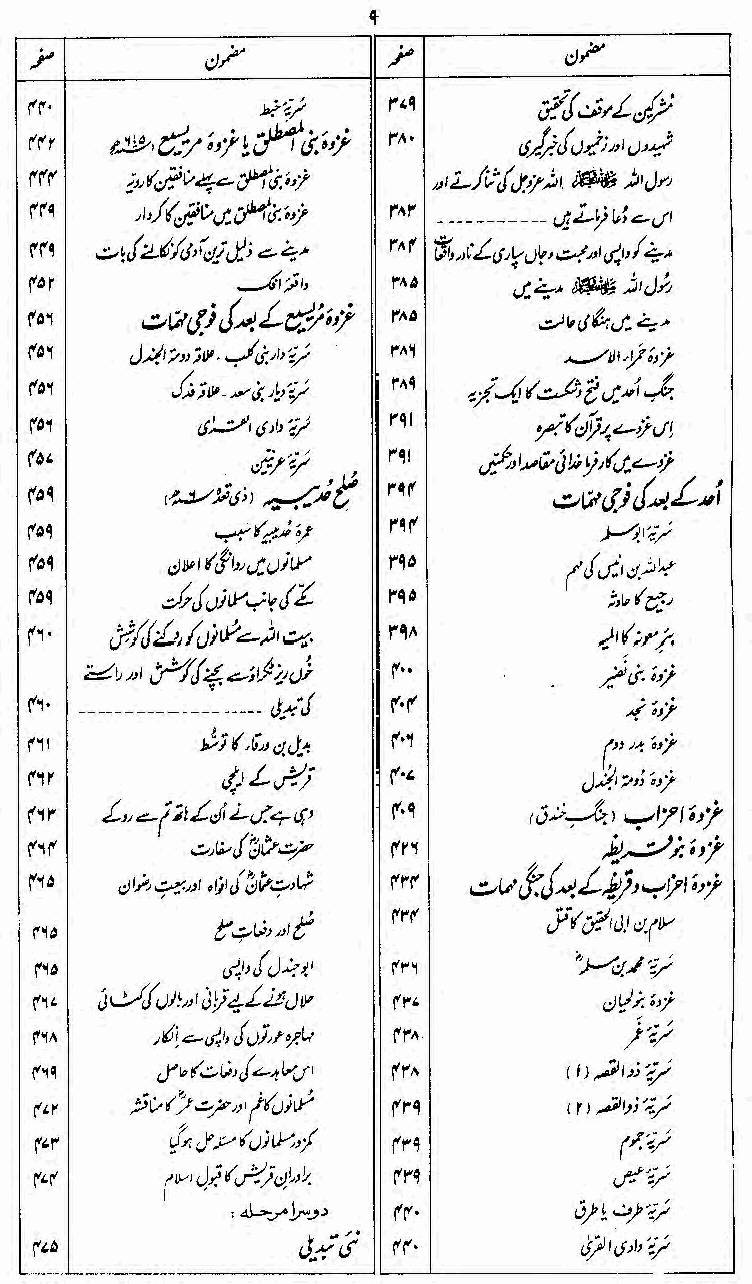 ۹
مضمون صفحہ
مشرکین کے موقف کی تحقیق ۳۷۹
شہیدوں اور زخمیوں کی خبرگیری ۳۸۰
رسول اللہ ﷺ اللہ عزوجل کی ثنا کرتے اور
اس سے دعا فرماتے ہیں ------------ ۳۸۳
مدینے کو واپسی اور محبت و جاں سپاری کے نادر واقعات ۳۸۴
رسول اللہ ﷺ مدینے میں ۳۸۵
مدینے میں ہنگامی حالت ۳۸۵
غزوۂ حمراء الاسد ۳۸۶
جنگ اُحد میں فتح و شکست کا ایک تجزیہ ۳۸۹
اس غزوے پر قرآن کا تبصرہ ۳۹۱
غزوے میں کارفرما خدائی مقاصد اور حکمتیں ۳۹۱
اُحد کے بعد کی فوجی مہمات ۳۹۴
سریۂ ابوسلمہ ۳۹۴
عبداللہ بن انیس کی مہم ۳۹۵
رجیع کا حادثہ ۳۹۵
بئر معونہ کا المیہ ۳۹۸
غزوۂ بنی نضیر ۴۰۰
غزوۂ نجد ۴۰۴
غزوۂ بدر دوم ۴۰۶
غزوۂ دومۃ الجندل ۴۰۷
غزوۂ احزاب (جنگِ خندق) ۴۰۹
غزوۂ بنو قریظہ ۴۲۶
غزوۂ احزاب و قریظہ کے بعد کی جنگی مہمات ۴۳۴
سلام بن ابی الحقیق کا قتل ۴۳۴
سریۂ محمد بن مسلمہؓ ۴۳۶
غزوۂ بنو لحیان ۴۳۷
سریۂ غمر ۴۳۸
سریۂ ذوالقصہ (۱) ۴۳۸
سریۂ ذوالقصہ (۲) ۴۳۹
سریۂ جموم ۴۳۹
سریۂ عیص ۴۳۹
سریۂ طرف یا طرق ۴۴۰
سریۂ وادی القریٰ ۴۴۰
مضمون صفحہ
سریۂ خبط ۴۴۰
غزوۂ بنی المصطلق یا غزوۂ مریسیع ۴۴۲
غزوۂ بنی المصطلق سے پہلے منافقین کا رویہ ۴۴۴
غزوۂ بنی المصطلق میں منافقین کا کردار ۴۴۹
مدینے سے ذلیل ترین آدمی کو نکالنے کی بات ۴۴۹
واقعۂ افک ۴۵۲
غزوۂ مریسیع کے بعد کی فوجی مہمات ۴۵۶
سریۂ دیار بنی کلب۔ علاقہ دومۃ الجندل ۴۵۶
سریۂ دیار بنی سعد۔ علاقہ فدک ۴۵۶
سریۂ وادی القریٰ ۴۵۶
سریۂ عرنیین ۴۵۷
صلح حدیبیہ (ذی قعدہ ۶ھ) ۴۵۹
عمرۂ حدیبیہ کا سبب ۴۵۹
مسلمانوں میں روانگی کا اعلان ۴۵۹
مکے کی جانب مسلمانوں کی حرکت ۴۵۹
بیت اللہ سے مسلمانوں کو روکنے کی کوشش ۴۶۰
خوں ریز ٹکراؤ سے بچنے کی کوشش اور راستے
کی تبدیلی -------------------- ۴۶۰
بدیل بن ورقاء کا توسّط ۴۶۱
قریش کے ایلچی ۴۶۲
وہی ہے جس نے اُن کے ہاتھ تم سے روکے ۴۶۳
حضرت عثمانؓ کی سفارت ۴۶۴
شہادتِ عثمانؓ کی افواہ اور بیعتِ رضوان ۴۶۵
صلح اور دفعاتِ صلح ۴۶۵
ابوجندل کی واپسی ۴۶۵
حلال ہونے کے لیے قربانی اور بالوں کی کٹائی ۴۶۷
مہاجرہ عورتوں کی واپسی سے انکار ۴۶۸
اس معاہدے کی دفعات کا حاصل ۴۶۹
مسلمانوں کا غم اور حضرت عمرؓ کا مناقشہ ۴۷۲
کمزور مسلمانوں کا مسئلہ حل ہوگیا ۴۷۳
برادرانِ قریش کا قبولِ اسلام ۴۷۴
دوسرا مرحلہ :
نئی تبدیلی ۴۷۵